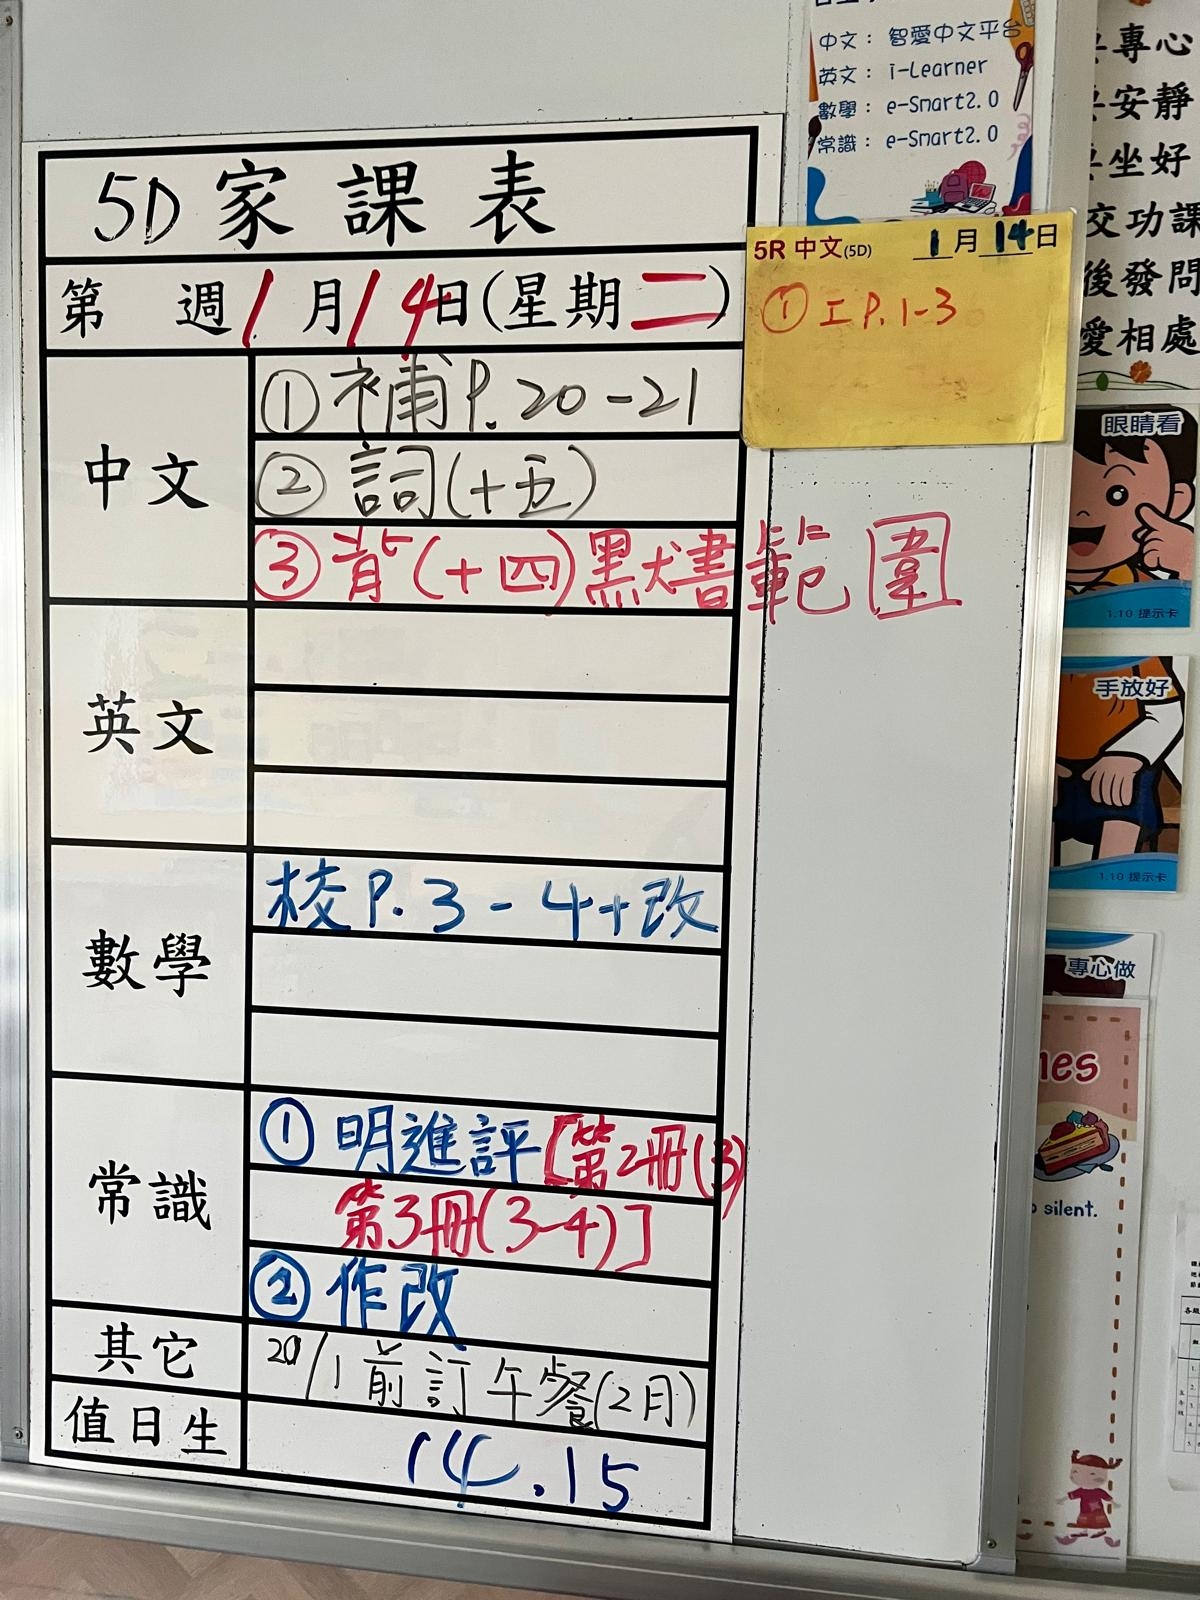 5D 家課表
第 週 1月14日(星期二)
中文
① 補P.20-21
② 詞(十五)
③ 背(十四)默書範圍
英文
數學
校P.3-4+改
常識
① 明進評[第2冊(3)
第3冊(3-4)]
② 作改
其它
20/1前訂午餐(2月)
值日生
14.15
中文：智愛中文平台
英文：i-Learner
數學：e-Smart2.0
常識：e-Smart2.0
5R 中文(5D) 1月14日
① 工P.1-3
專心
安靜
坐好
交功課
後發問
愛相處
眼睛看
1.10 提示卡
手放好
1.10 提示卡
專心做
silent.